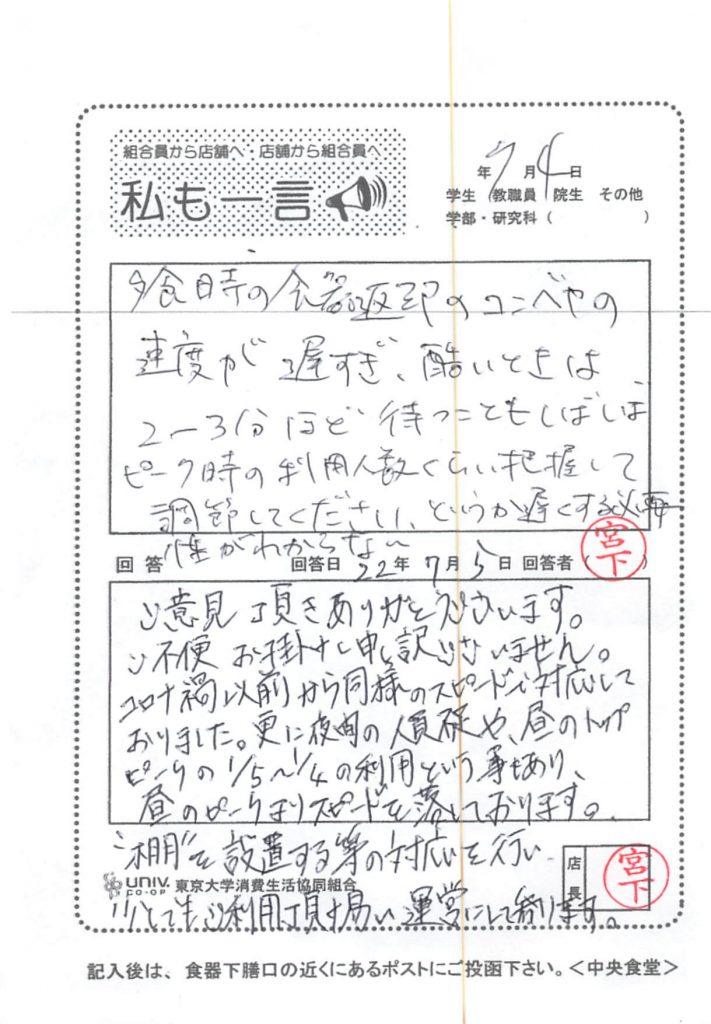 組合員から店舗へ・店舗から組合員へ
私も一言
年 7月 4日
学生 教職員 院生 その他
学部・研究科（ ）
夕食時の食器返却のコンベヤの
速度が遅すぎ、酷いときは
2ー3分ほど待つこともしばしば
ピーク時の利用人数くらい把握して
調節してください、というか遅くする必要
性がわからない
回答 回答日 22年 7月 5日 回答者（宮下）
ご意見頂きありがとうございます。
ご不便お掛けし申し訳ございません。
コロナ禍以前から同様のスピードで対応して
おりました。更に夜間の人員、昼のトップ
ピークの1/5〜1/4の利用という事もあり、
昼のピークよりスピードを落しております。
"棚"を設置する等の対応を行い
店長 宮下
UNIV. CO-OP 東京大学消費生活協同組合
少しでもご利用頂き易い運営にして参ります。
記入後は、食器下膳口の近くにあるポストにご投函下さい。＜中央食堂＞